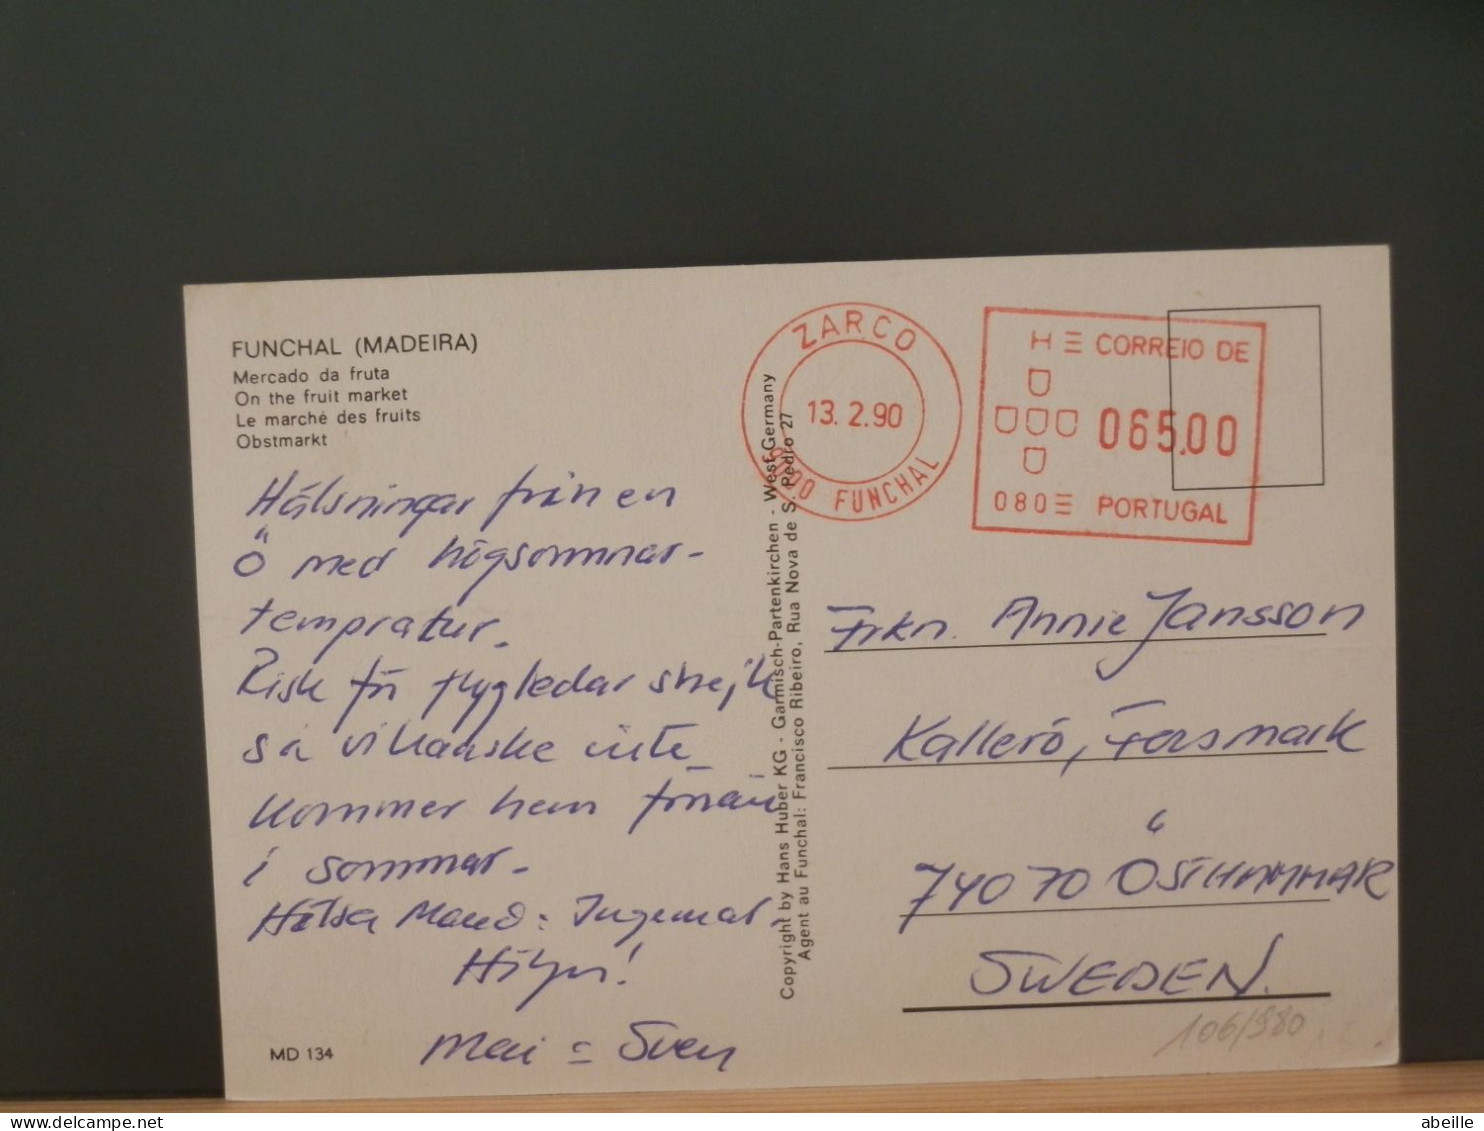 FUNCHAL (MADEIRA)
Mercado da fruta
On the fruit market
Le marché des fruits
Obstmarkt
Hälsningar från en
Ö med högsommar-
tempratur.
Risk för flygledar strejk
så vi kanske inte
kommer hem förrän
i sommar.
Hälsa Maud = Ingemar.
Mai = Sven
MD 134
Copyright by Hans Huber KG - Garmisch-Partenkirchen - West-Germany
Agent au Funchal: Francisco Ribeiro, Rua Nova de S. Pedro 27
ZARCO
13. 2.90
FUNCHAL
CORREIO DE
065.00
080
PORTUGAL
Frkn. Annie Jansson
Kallerö, Forsmark
74070 ÖSTHAMMAR
SWEDEN.
106/980
abeille